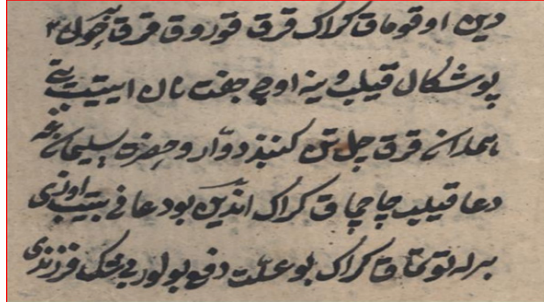 دین اوقوماق کراک قرق قوروق قرق خرمانی
پوشکال قیلیب وینه اوچ جفت نان ایتیب یتی
همدانه قرق چل تن کنبذ دوّار و حضرت سلیمان غه
دعا قیلیب چاچماق کراک اندین بو دعانی بیتیب اوزی
برله توتماق کراک بو علّت دفع بولور بی شک فرزندی